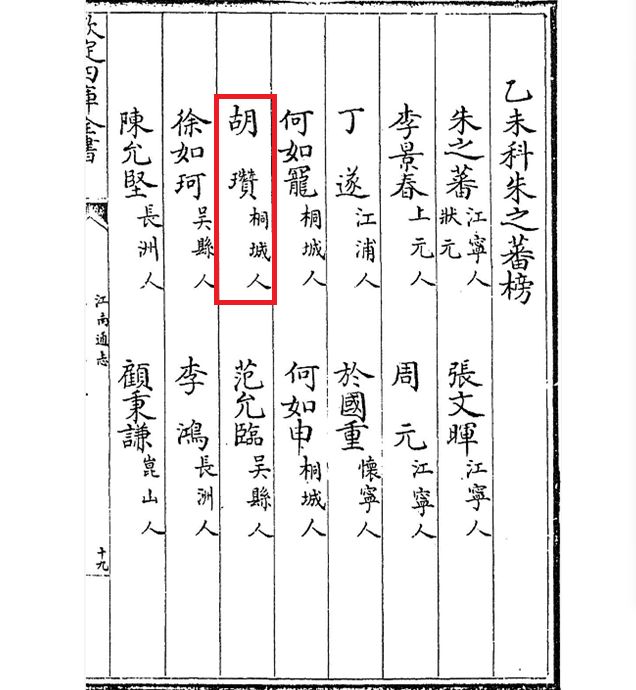 乙未科朱之蕃榜
朱之蕃江寧人狀元
張文暉江寧人
李景春上元人
周元江寧人
丁遂江浦人
於國重懷寧人
何如寵桐城人
何如申桐城人
胡瓚桐城人
范允臨吳縣人
徐如珂吳縣人
李鴻長洲人
陳允堅長洲人
顧秉謙崑山人
欽定四庫全書
江南通志
十九